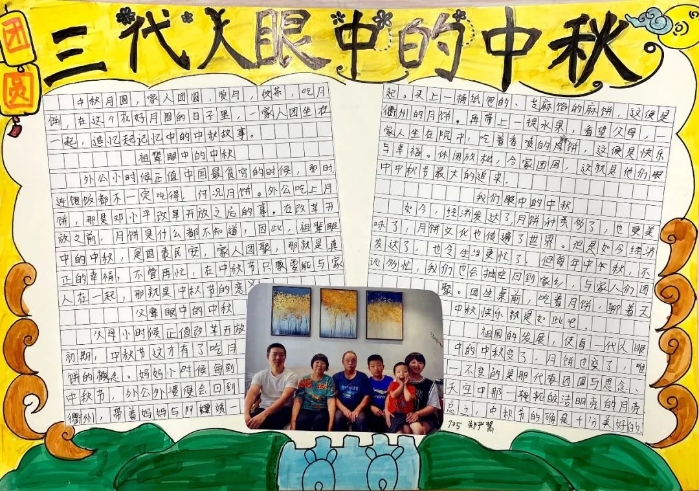 团圆
三代人眼中的中秋
中秋月圆，家人团圆，赏月、饮茶、吃月
饼，在这个花好月圆的日子里，一家人坐在
一起，追忆起记忆中的中秋故事。
祖辈眼中的中秋
外公小时候正值中国最贫穷的时候，那时
连馒饭都不一定吃得，何况月饼。外公吃上月
饼，那是邓小平改革开放之后的事。在改革开
放之前，月饼是什么都不知道，因此，祖辈眼
中的中秋，是国泰民安，家人团聚，那就是真
正的幸福，不管再忙，在中秋节只要能与家
人在一起，那就是中秋节的意义
父辈眼中的中秋
父母小时候正值改革开放
初期，中秋节这才有了吃月
饼的概念。妈妈小时候每到
中秋节，外公外婆便会回到
衢州，带着妈妈与阿姨一
起。买上一桶纸包的、芝麻馅的麻饼，这便是
衢州的月饼。再带上一袋水果，看望父母，一
家人坐在院中，吃着香喷的月饼，这便是快乐
与幸福。休闲放松，合家团圆，这就是他们眼
中中秋节最大的追求。
我们眼中的中秋
如今，经济发达了，月饼种类多了，也更美
味了，月饼文化也传遍了世界。但是如今经济
发达了，也令生活更忙了，但每年中秋，不
论多忙，我们也会抽空回到家乡，与家人们团
聚。团坐桌前，吃着月饼，聊着天
中秋快乐就是如此吧。
祖国的发展，使每一代人眼
中的中秋变了，月饼也变了，唯
不变的是那代表团圆与思念
天空中那一轮皎洁明亮的月亮
总之，中秋节的确是十分美好的
705